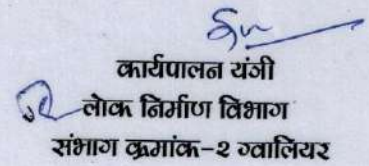 कार्यपालन यंत्री
लोक निर्माण विभाग
संभाग क्रमांक-२ ग्वालियर